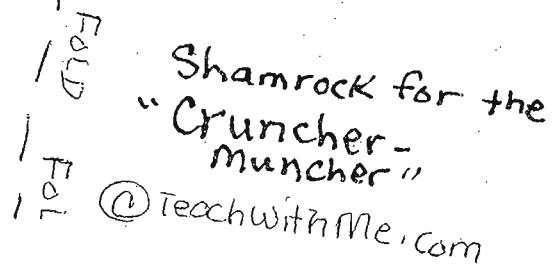 FOLD
Shamrock for the
"Cruncher-
muncher"
FOL
@TeachwithMe.com